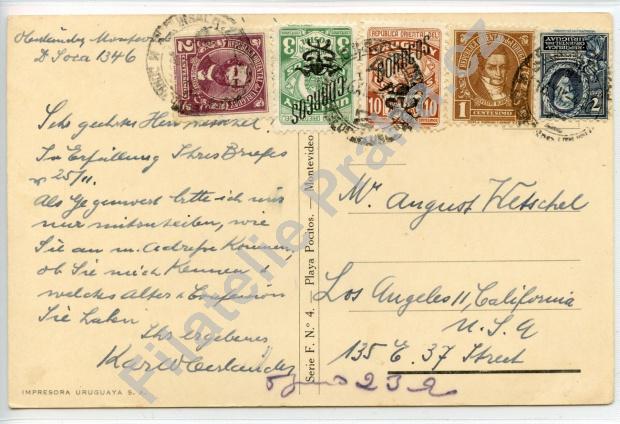 D Soca 1346
Sehr geehrter Herr
In Erfüllung Ihres Briefes
v. 25/11.
Als Gegenwert bitte ich mir
nur mitzuteilen, wie
Sie an m. Adresse kommen,
ob Sie mich kennen &
welches Alter &
Sie haben
Ihr ergebener
Karl
IMPRESORA URUGUAYA S.
Serie F. N.º 4. — Playa Pocitos. Montevideo
Mr. August Wetschel
Los Angeles 11, California
U.S.A
135 E. 37 Street
232
2
CENTENARIO
3
CORREOS
REPUBLICA ORIENTAL DEL
URUGUAY
CORREOS
10
10
1
CENTESIMO
2
Filatelie Praha.cz